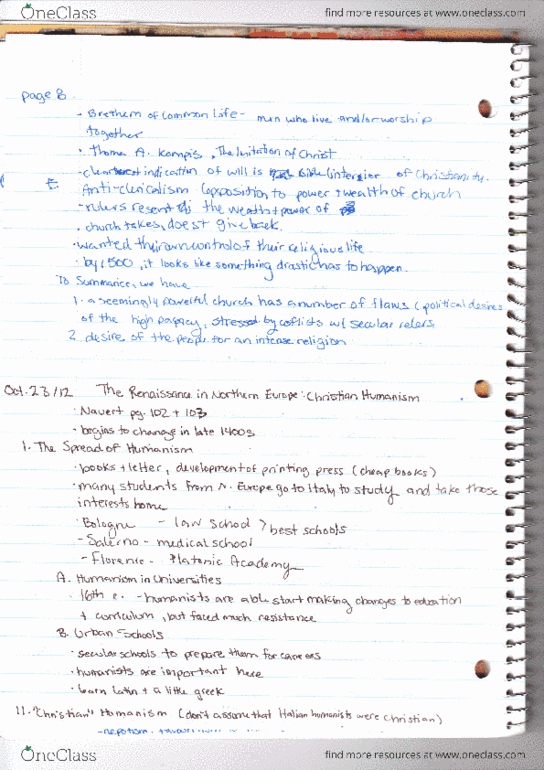 OneClass find more resources at www.oneclass.com
page 8
- Brethern of Common Life - men who live and/or worship
together
· Thoma A. Kempis, The Imitation of Christ
indication of will is of Christianity.
E. Anti-clericalism (opposition to power + wealth of church
- rulers resent the wealth + power of
· church takes, does't give back.
· wanted their own control of their religious life
· by 1500, it looks like something drastic has to happen.
To Summarize, we have
1. a seemingly powerful church has a number of flaws (political desires
of the high papacy, stressed by coflicts w/ secular rulers
2. desire of the people for an intense religion
Oct. 23/12 The Renaissance in Northern Europe: Christian Humanism
· Nauert pg. 102 + 103
- begins to change in late 1400s
1. The Spread of Humanism
· books + letter, development of printing press (cheap books)
· many students from N. Europe go to Italy to study and take those
interests home
· Bologna - law school > best schools
- Salerno - medical school
- Florence - Platonic Academy
A. Humanism in Universities
· 16th c. - humanists are able start making changes to education
+ curriculum, but faced much resistance
B. Urban Schools
· secular schools to prepare them for careers
· humanists are important here
· learn latin + a little greek
11. "Christian" Humanism (don't assume that Italian humanists were Christian)
- nepotism
OneClass find more resources at www.oneclass.com